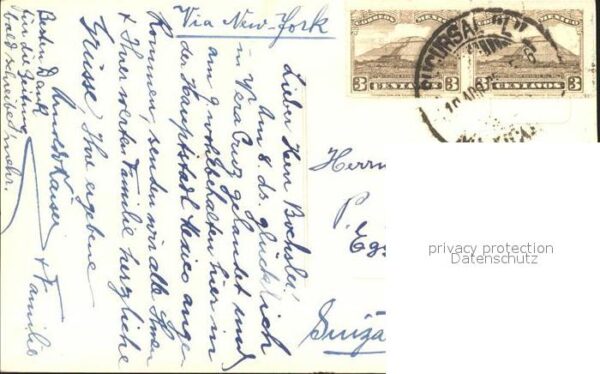 Via New-York
Lieber Herr Bochsler!
Am 8. ds. glücklich
in Vera Cruz gelandet und
am 9. wohlbehalten hier in
der Hauptstadt Mexico ange-
kommen, senden wir alle Ihnen
& Ihrer werten Familie herzliche
Grüsse Ihr ergebene
& Familie
Besten Dank
für die Zeitung
bald schreibe mehr.
Herrn
P.
Suiza
CORREOS MEXICO
3 CENTAVOS 3
3 CENTAVOS 3
SUCURSAL
privacy protection
Datenschutz